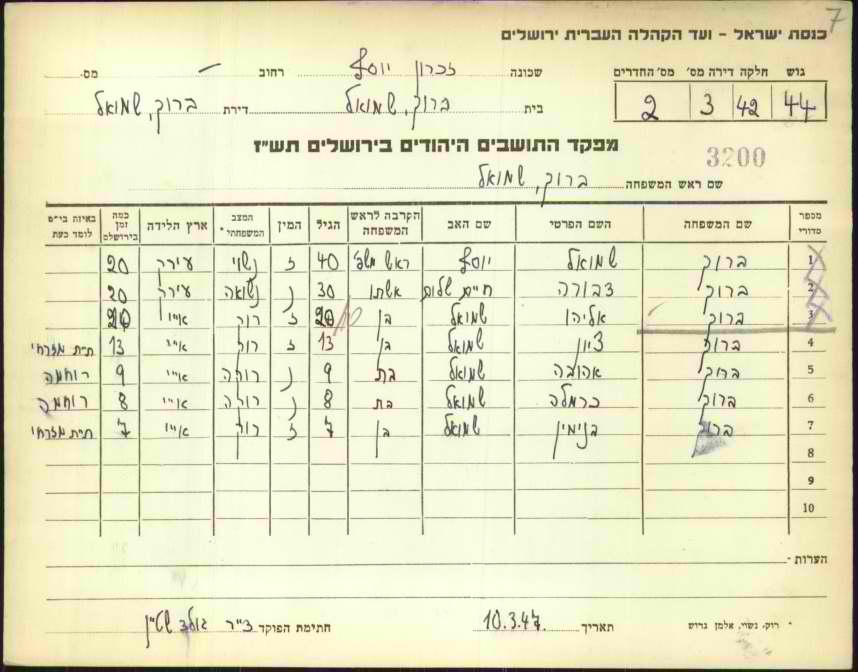 7
כנסת ישראל - ועד הקהלה העברית ירושלים
גוש חלקה דירה מס' מס' החדרים
44 42 3 2
שכונה זכרון יוסף רחוב — מס.
בית ברוך, שמואל דירת ברוך, שמואל
מפקד התושבים היהודים בירושלים תש"ז
3200
שם ראש המשפחה ברוך, שמואל
מספר סדורי שם המשפחה השם הפרטי שם האב הקרבה לראש המשפחה הגיל המין המצב המשפחתי * ארץ הלידה כמה זמן בירושלים באיזה בי"ס לומד כעת
1 ברוך שמואל יוסף ראש משפ' 40 ז נשוי עירק 20
2 ברוך צבורה חיים שלום אשתו 30 נ נשואה עירק 20
3 ברוך אליהו שמואל בן 20 ז רוק א"י 20
4 ברוך ציון שמואל בן 13 ז רוק א"י 13 ת"ת מזרחי
5 ברוך אהובה שמואל בת 9 נ רוקה א"י 9 רוחמה
6 ברוך כרמלה שמואל בת 8 נ רוקה א"י 8 רוחמה
7 ברוך בנימין שמואל בן 7 ז רוק א"י 7 ת"ת מזרחי
8
9
10
הערות -
* רוק, נשוי, אלמן, גרוש תאריך 10.3.47 חתימת הפוקד צ"ר גולדשטיין